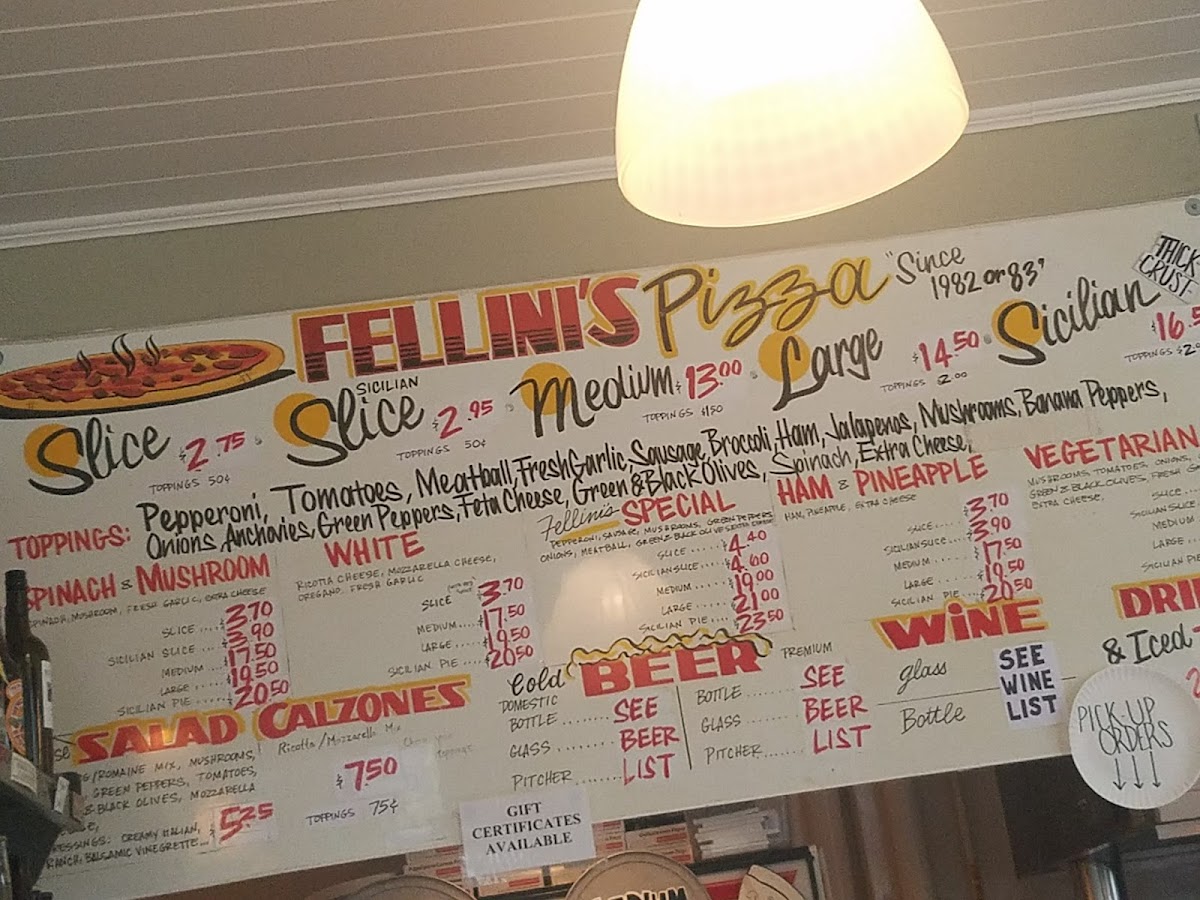 FELLINI'S Pizza "Since 1982 or 83"
THICK CRUST
Slice $2.75
TOPPINGS 50¢
SICILIAN Slice $2.95
TOPPINGS 50¢
Medium $13.00
TOPPINGS $1.50
Large $14.50
TOPPINGS $2.00
Sicilian
TOPPINGS
TOPPINGS: Pepperoni, Tomatoes, Meatball, Fresh Garlic, Sausage, Broccoli, Ham, Jalapenos, Mushrooms, Banana Peppers,
Onions, Anchovies, Green Peppers, Feta Cheese, Green & Black Olives, Spinach, Extra Cheese,
SPINACH & MUSHROOM
SPINACH, MUSHROOM, FRESH GARLIC, EXTRA CHEESE
SLICE .... $3.70
SICILIAN SLICE .... $3.90
MEDIUM .... $17.50
LARGE ..... $19.50
SICILIAN PIE .... $20.50
WHITE
RICOTTA CHEESE, MOZZARELLA CHEESE,
OREGANO, FRESH GARLIC
SLICE $3.70
MEDIUM..... $17.50
LARGE .... $19.50
SICILIAN PIE .... $20.50
Fellini's SPECIAL
PEPPERONI, SAUSAGE, MUSHROOMS, GREEN PEPPERS
ONIONS, MEATBALL, GREEN & BLACK OLIVES, EXTRA CHEESE
SLICE ..... $4.40
SICILIAN SLICE .... $4.60
MEDIUM .... $19.00
LARGE .... $21.00
SICILIAN PIE .... $23.50
HAM & PINEAPPLE
HAM, PINEAPPLE, EXTRA CHEESE
SLICE .... $3.70
SICILIAN SLICE .... $3.90
MEDIUM .... $17.50
LARGE .... $19.50
SICILIAN PIE .... $20.50
VEGETARIAN
MUSHROOMS, TOMATOES, ONIONS,
GREEN & BLACK OLIVES, FRESH
EXTRA CHEESE,
SLICE
SICILIAN SLICE
MEDIUM
LARGE
SICILIAN PIE
SALAD
ROMAINE MIX, MUSHROOMS,
GREEN PEPPERS, TOMATOES,
& BLACK OLIVES, MOZZARELLA
CREAMY ITALIAN,
RANCH, BALSAMIC VINEGRETTE...
$5.25
CALZONES
Ricotta/Mozzarella Mix
$7.50
TOPPINGS 75¢
Cold BEER
DOMESTIC
BOTTLE
GLASS
PITCHER
SEE
BEER
LIST
PREMIUM
BOTTLE
GLASS
PITCHER
SEE
BEER
LIST
WINE
glass
Bottle
SEE
WINE
LIST
& Iced
PICK-UP
ORDERS
GIFT
CERTIFICATES
AVAILABLE
MEDIUM